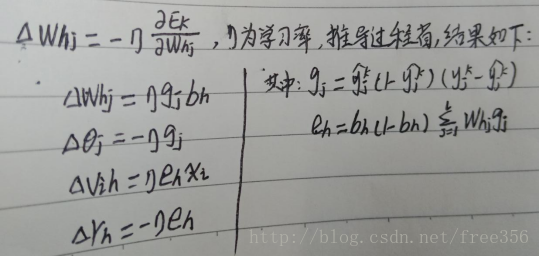 ΔWhj = -η ∂Ek/∂Whj , η为学习率,推导过程省,结果如下:
ΔWhj = ηgjbh
Δθj = -ηgj
ΔVih = ηehxi
Δγh = -ηeh
其中: gj = ŷjᵏ(1-ŷjᵏ)(yjᵏ-ŷjᵏ)
eh = bh(1-bh) Σ Whjgj
http://blog.csdn.net/free356